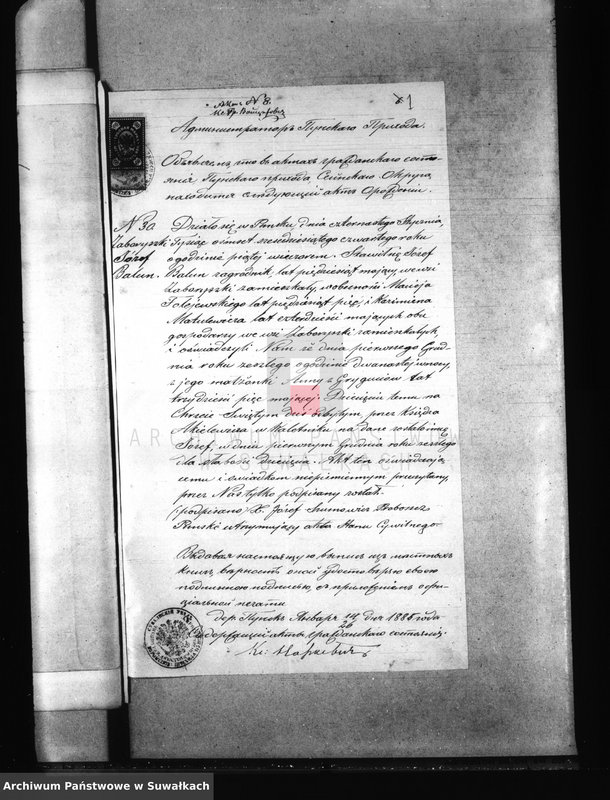 Актъ N 8.
1
Администраторъ Пунскаго Прихода.
Объявляетъ, что въ актахъ гражданскаго состо-
янія Пунскаго прихода Сейнскаго Округа,
находится слѣдующій актъ о рожденіи.
N 30
Zaboryszki
Józef
Balun.
Działo się w Puńsku, dnia czternastego Stycznia,
Tysiąc ośmset sześdziesiątego czwartego roku
o godzinie piątej wieczorem. Stawił się Józef
Balun zagrodnik, lat piędziesiąt mający, we wsi
Zaboryszki zamieszkały, w obecności Macieja
lat piędziesiąt pięć, i Kazimierza
Matulewicza lat czterdzieści mających obu
gospodarzy we wsi Zaboryszki zamieszkałych
i oświadczyli Nam że dnia pierwszego Grud-
nia roku zeszłego o godzinie dwunastej w nocy,
z jego małżonki Anny z Grygutiów lat
trzydzieści pięć mającej. Dziecięciu temu na
Chrzcie Świętym dniś odbytym, przez Księdza
w Kaletniku nadane zostało imię
Józef, w dniu pierwszym Grudnia roku zeszłego
dla słabości dziecięcia. Akt ten oświadczają-
cemu i świadkom niepiśmiennym przeczytany,
przez Nas tylko podpisany został.
(podpisano) X. Józef Szumowicz Proboszcz
Puński utrzymujący akta Stanu Cywilnego
Выдавая настоящую выпись изъ
книгъ, вѣрность оной удостовѣряю своею
подлинною подписью, съ приложеніемъ оффи-
ціальной печати
дер. Пунскъ Января 14/26 дня 1885 года
Содержащій акты гражданскаго состоянія:
Кс: Маркевичъ
ARCHIWUM PAŃSTWOWE
W SUWAŁKACH
Archiwum Państwowe w Suwałkach